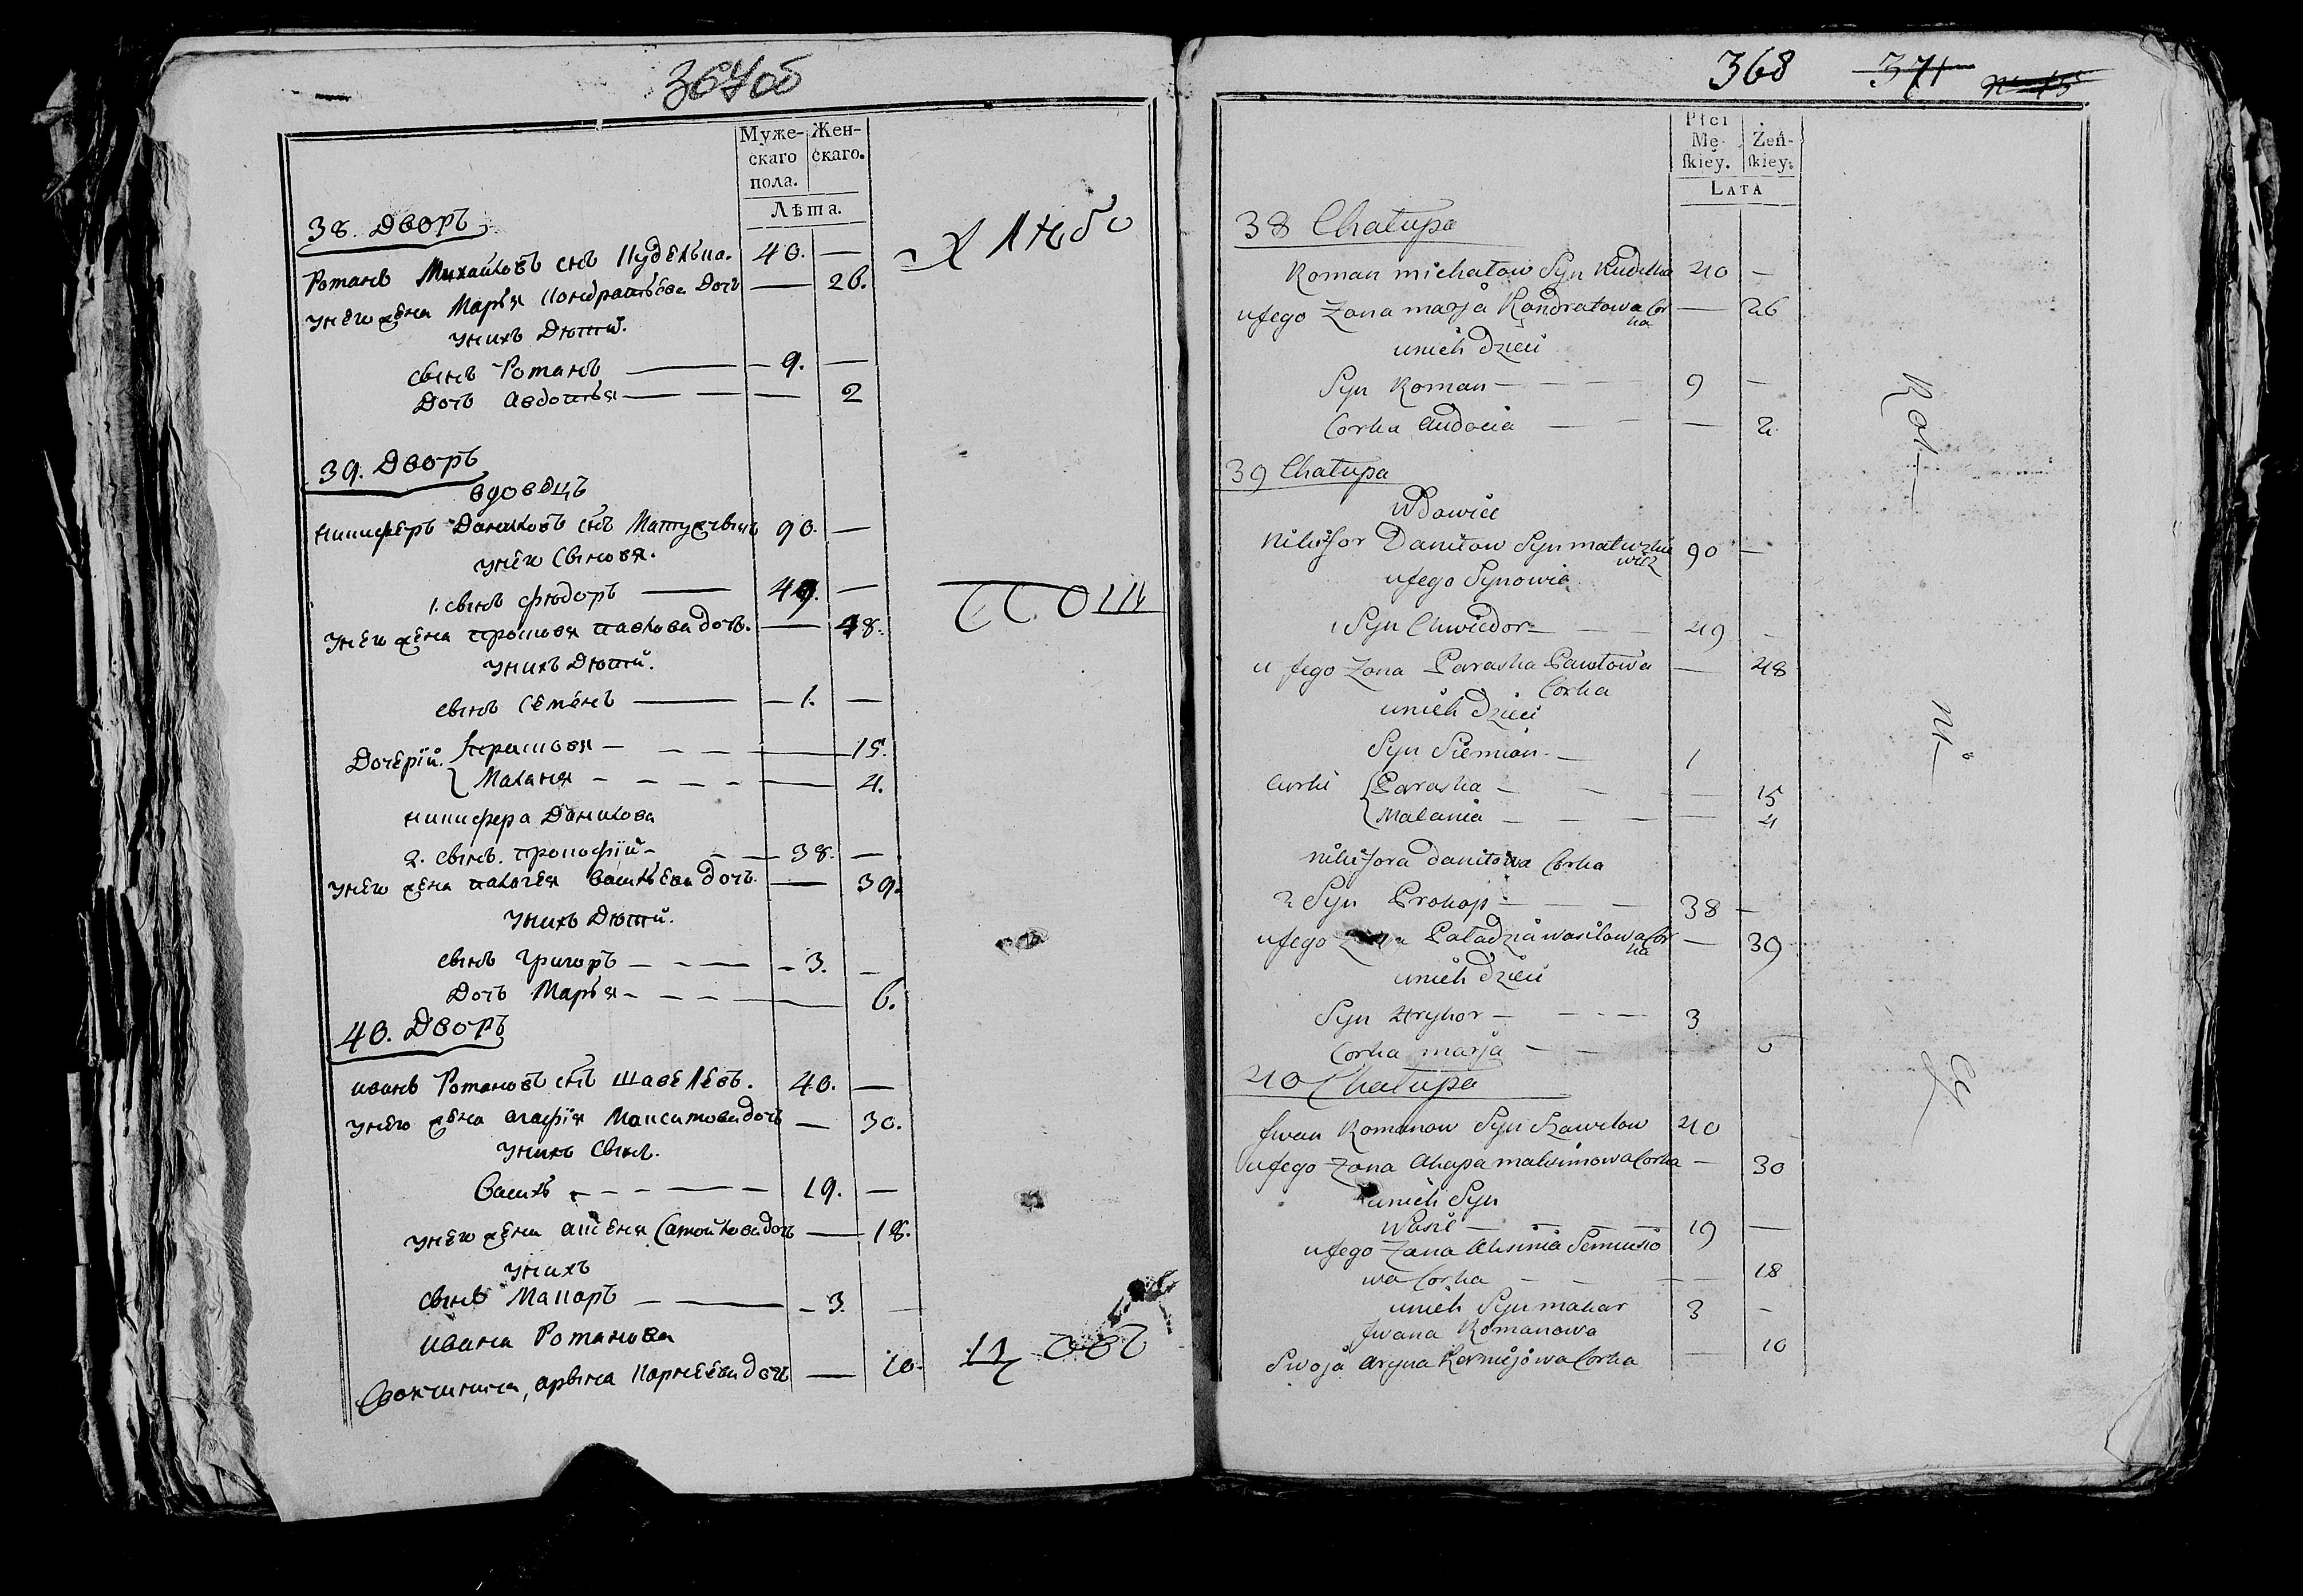 367об
Муже- Жен-
скаго скаго.
пола.
Лѣта.
38. Дворъ
Романъ Михайловъ снъ Куделька. 40. —
у него жена Марья Кондратьева дочь — 26.
у нихъ дѣти.
сынъ Романъ — 9. —
дочь Авдотья — — 2
39. Дворъ
вдовецъ
Никиферъ Даниловъ снъ Матужевичъ 90. —
у него сыновя.
1. сынъ Фюдоръ — 49. —
у него жена Просковя Павлова дочь. — 48.
у нихъ дѣти.
сынъ Семенъ — 1. —
Дочерій. Просковя — 15.
Маланя — 4.
Никифера Данилова
2. сынъ. Прокофій — 38. —
у него жена Палагея Васильева дочь. — 39.
у нихъ дѣти.
сынъ Григоръ — 3. —
дочь Марья — 6.
40. Дворъ
Иванъ Романовъ снъ Шавелевъ. 40. —
у него жена Агафія Максимова дочь — 30.
у нихъ сынъ.
Василь — 19. —
у него жена Аксеня Самойлова дочь — 18.
у нихъ
сынъ Макаръ — 3. —
Ивана Романова
Своячиница, Арына Карнеева дочь — 10.
Хлѣбо
паш
368 371 N 15
Płci
Mę- Żeń-
ſkiey. ſkiey.
LATA
38 Chałupa
Roman Michałow Syn Kudelka 40 —
u jego Zona Marja Kondratowa Cor — 26
ka
u nich Dzieci
Syn Roman — 9 —
Corka Audocia — — 2
39 Chałupa
Wdowiec
Nikifor Daniłow Syn Matuzkie 90 —
wicz
u jego Synowie
1 Syn Chwiedor — 49 —
u jego Zona Paraska Pawłowa — 48
Corka
u nich Dzieci
Syn Siemion — 1
Curki Paraska — — 15
Malania — — 4
Nikifora Daniłowa Corka
2 Syn Prokop — 38 —
u jego Zona Paładzia Wasilowa Cor — 39
ka
u nich Dzieci
Syn Hryhor — 3
Corka Marja — 6
40 Chałupa
Jwan Romanow Syn Szawelow 40
u jego Zona Ahapa Maksimowa Corka — 30
u nich Syn
Wasil — 19 —
u jego Zona Aksinia Semusio
wa Corka — — 18
u nich Syn Makar 3 —
Jwana Romanowa
Swoja Aryna Karniejowa Corka — 10